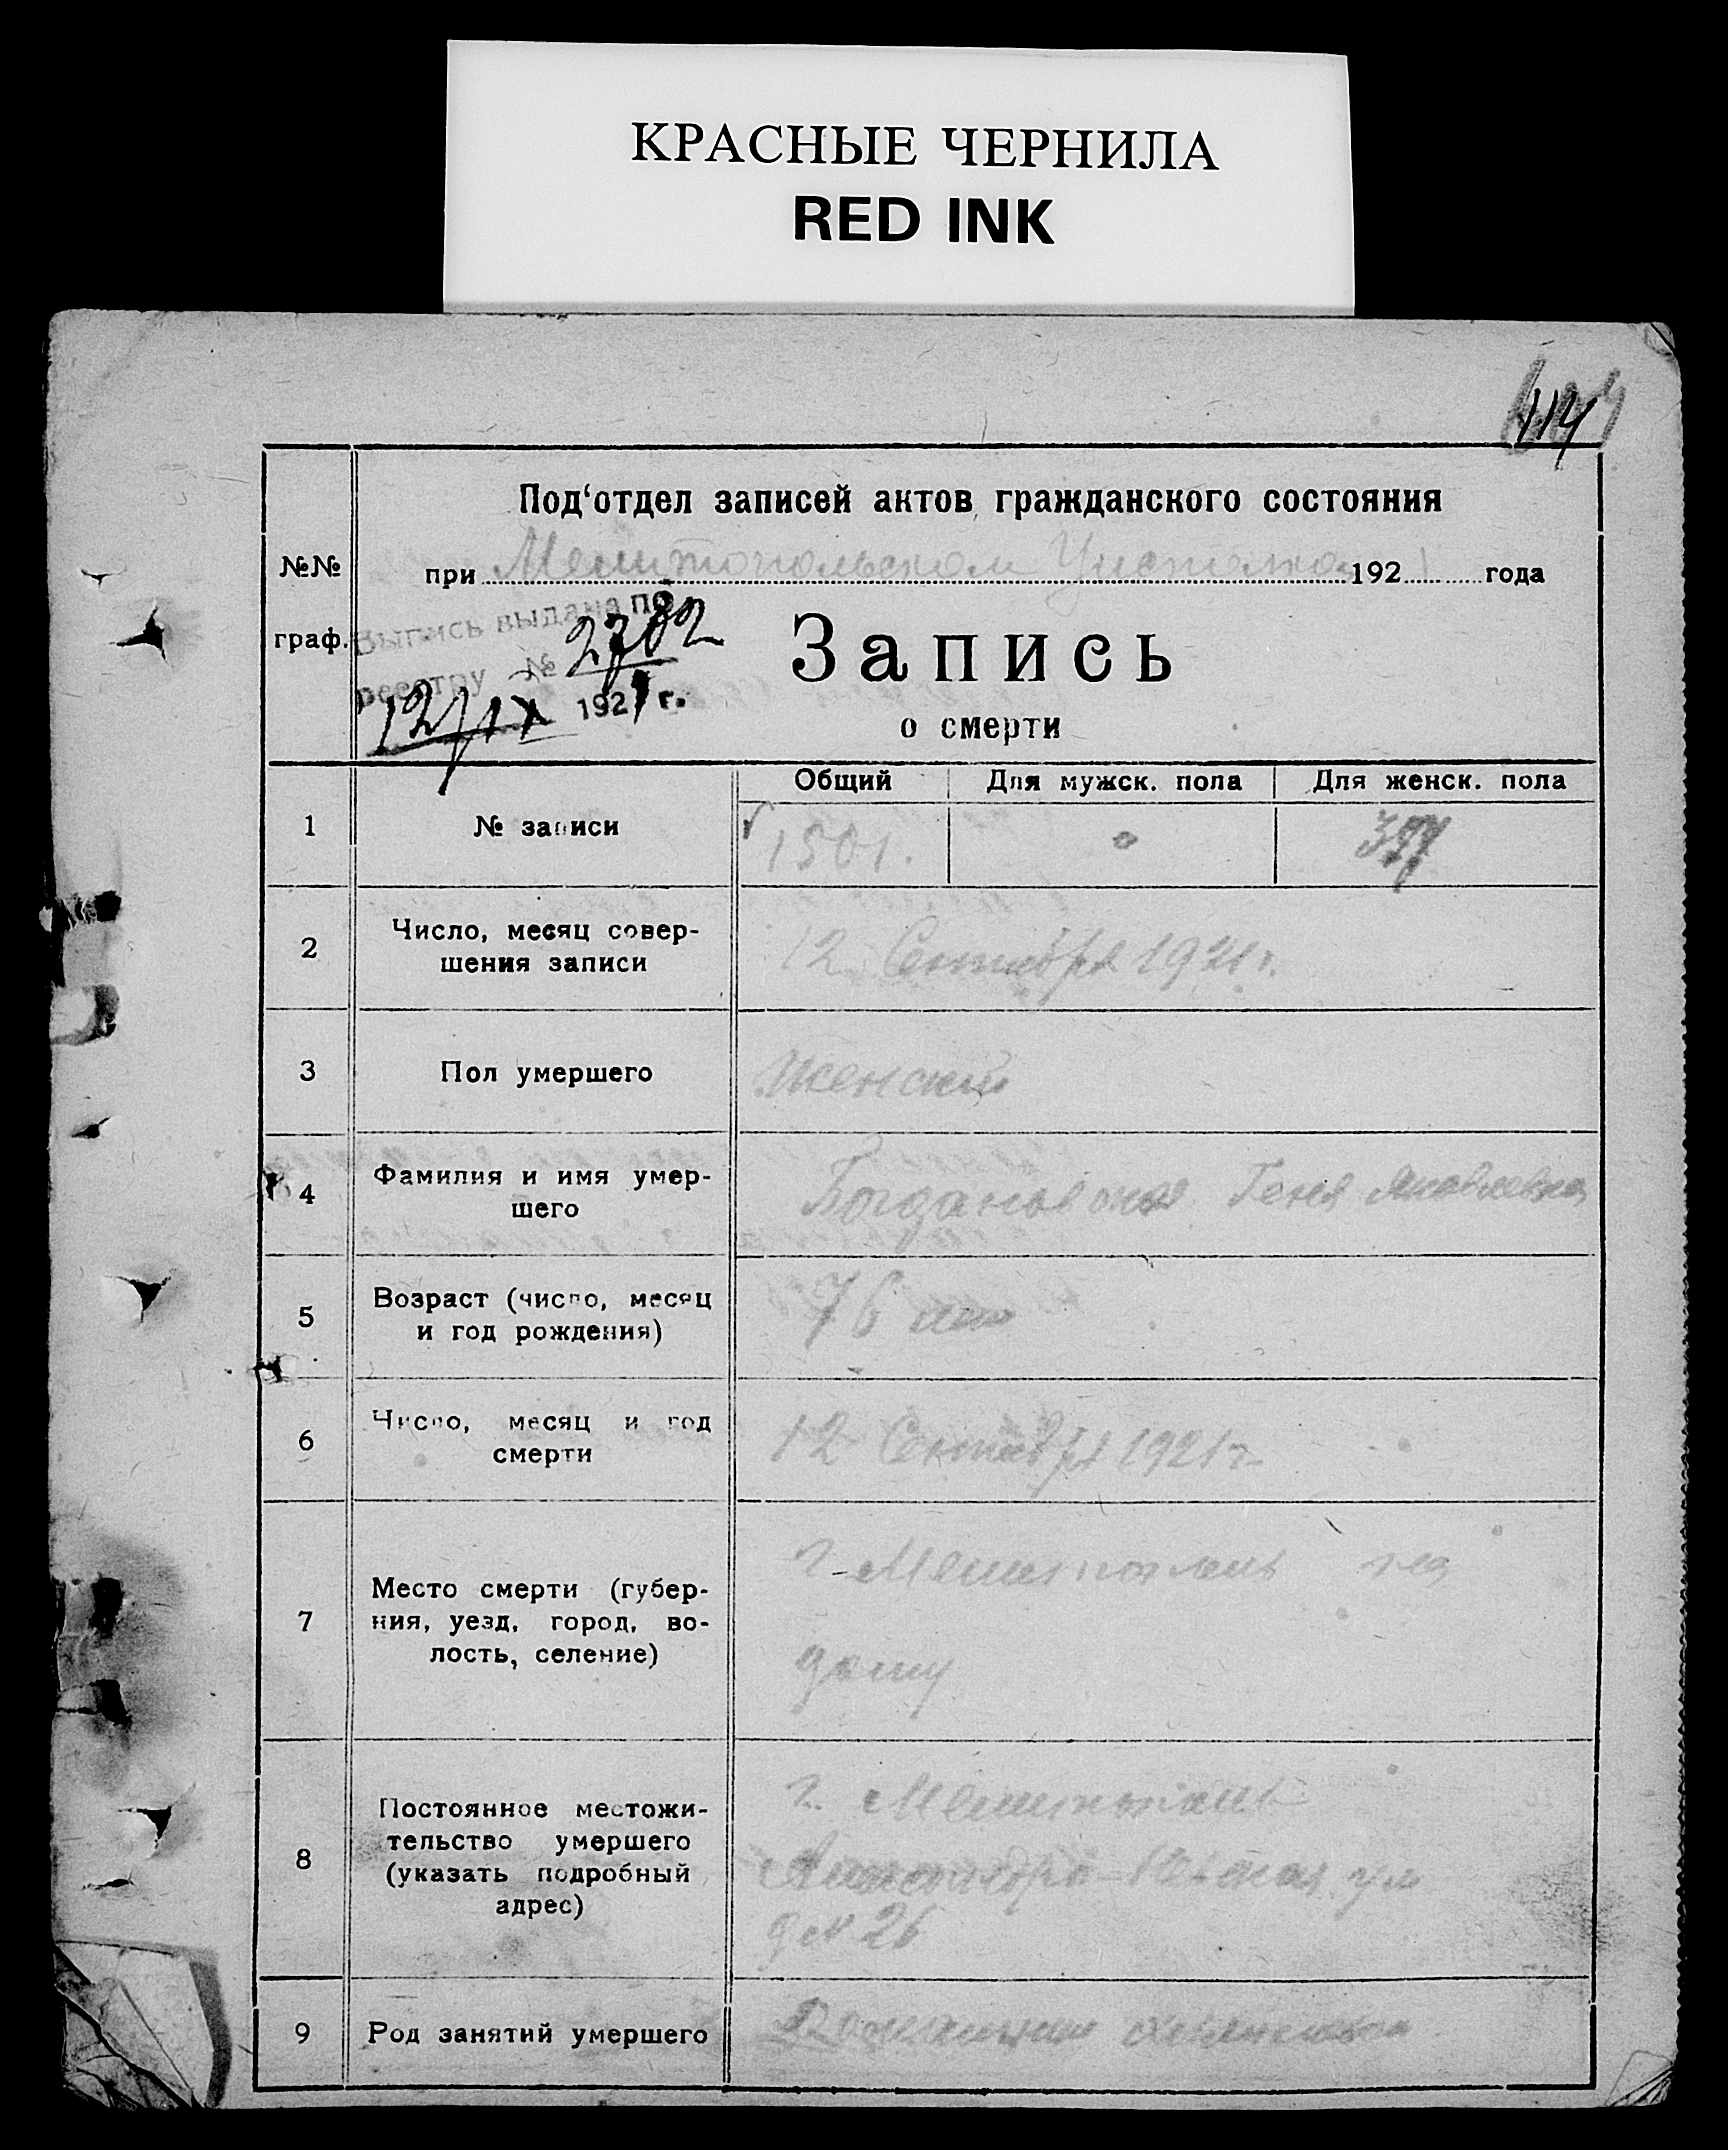 КРАСНЫЕ ЧЕРНИЛА
RED INK
114
Под‘отдел записей актов гражданского состояния
№№ граф.
при Мелитопольском 1921 года
Выпись выдана по
реестру № 2782
12/IX 1921 г.
Запись
о смерти
Общий Для мужск. пола Для женск. пола
1 № записи 1501.
2 Число, месяц совер-
шения записи 12 Сентября 1921 г.
3 Пол умершего Женский
4 Фамилия и имя умер-
шего Богдановская Геня Яковлевна
5 Возраст (число, месяц
и год рождения) 76 лет
6 Число, месяц и год
смерти 12 Сентября 1921 г.
7 Место смерти (губер-
ния, уезд, город, во-
лость, селение) г. Мелитополь на
дому
8 Постоянное местожи-
тельство умершего
(указать подробный
адрес) г. Мелитополь
ул
д № 26
9 Род занятий умершего Домашнее